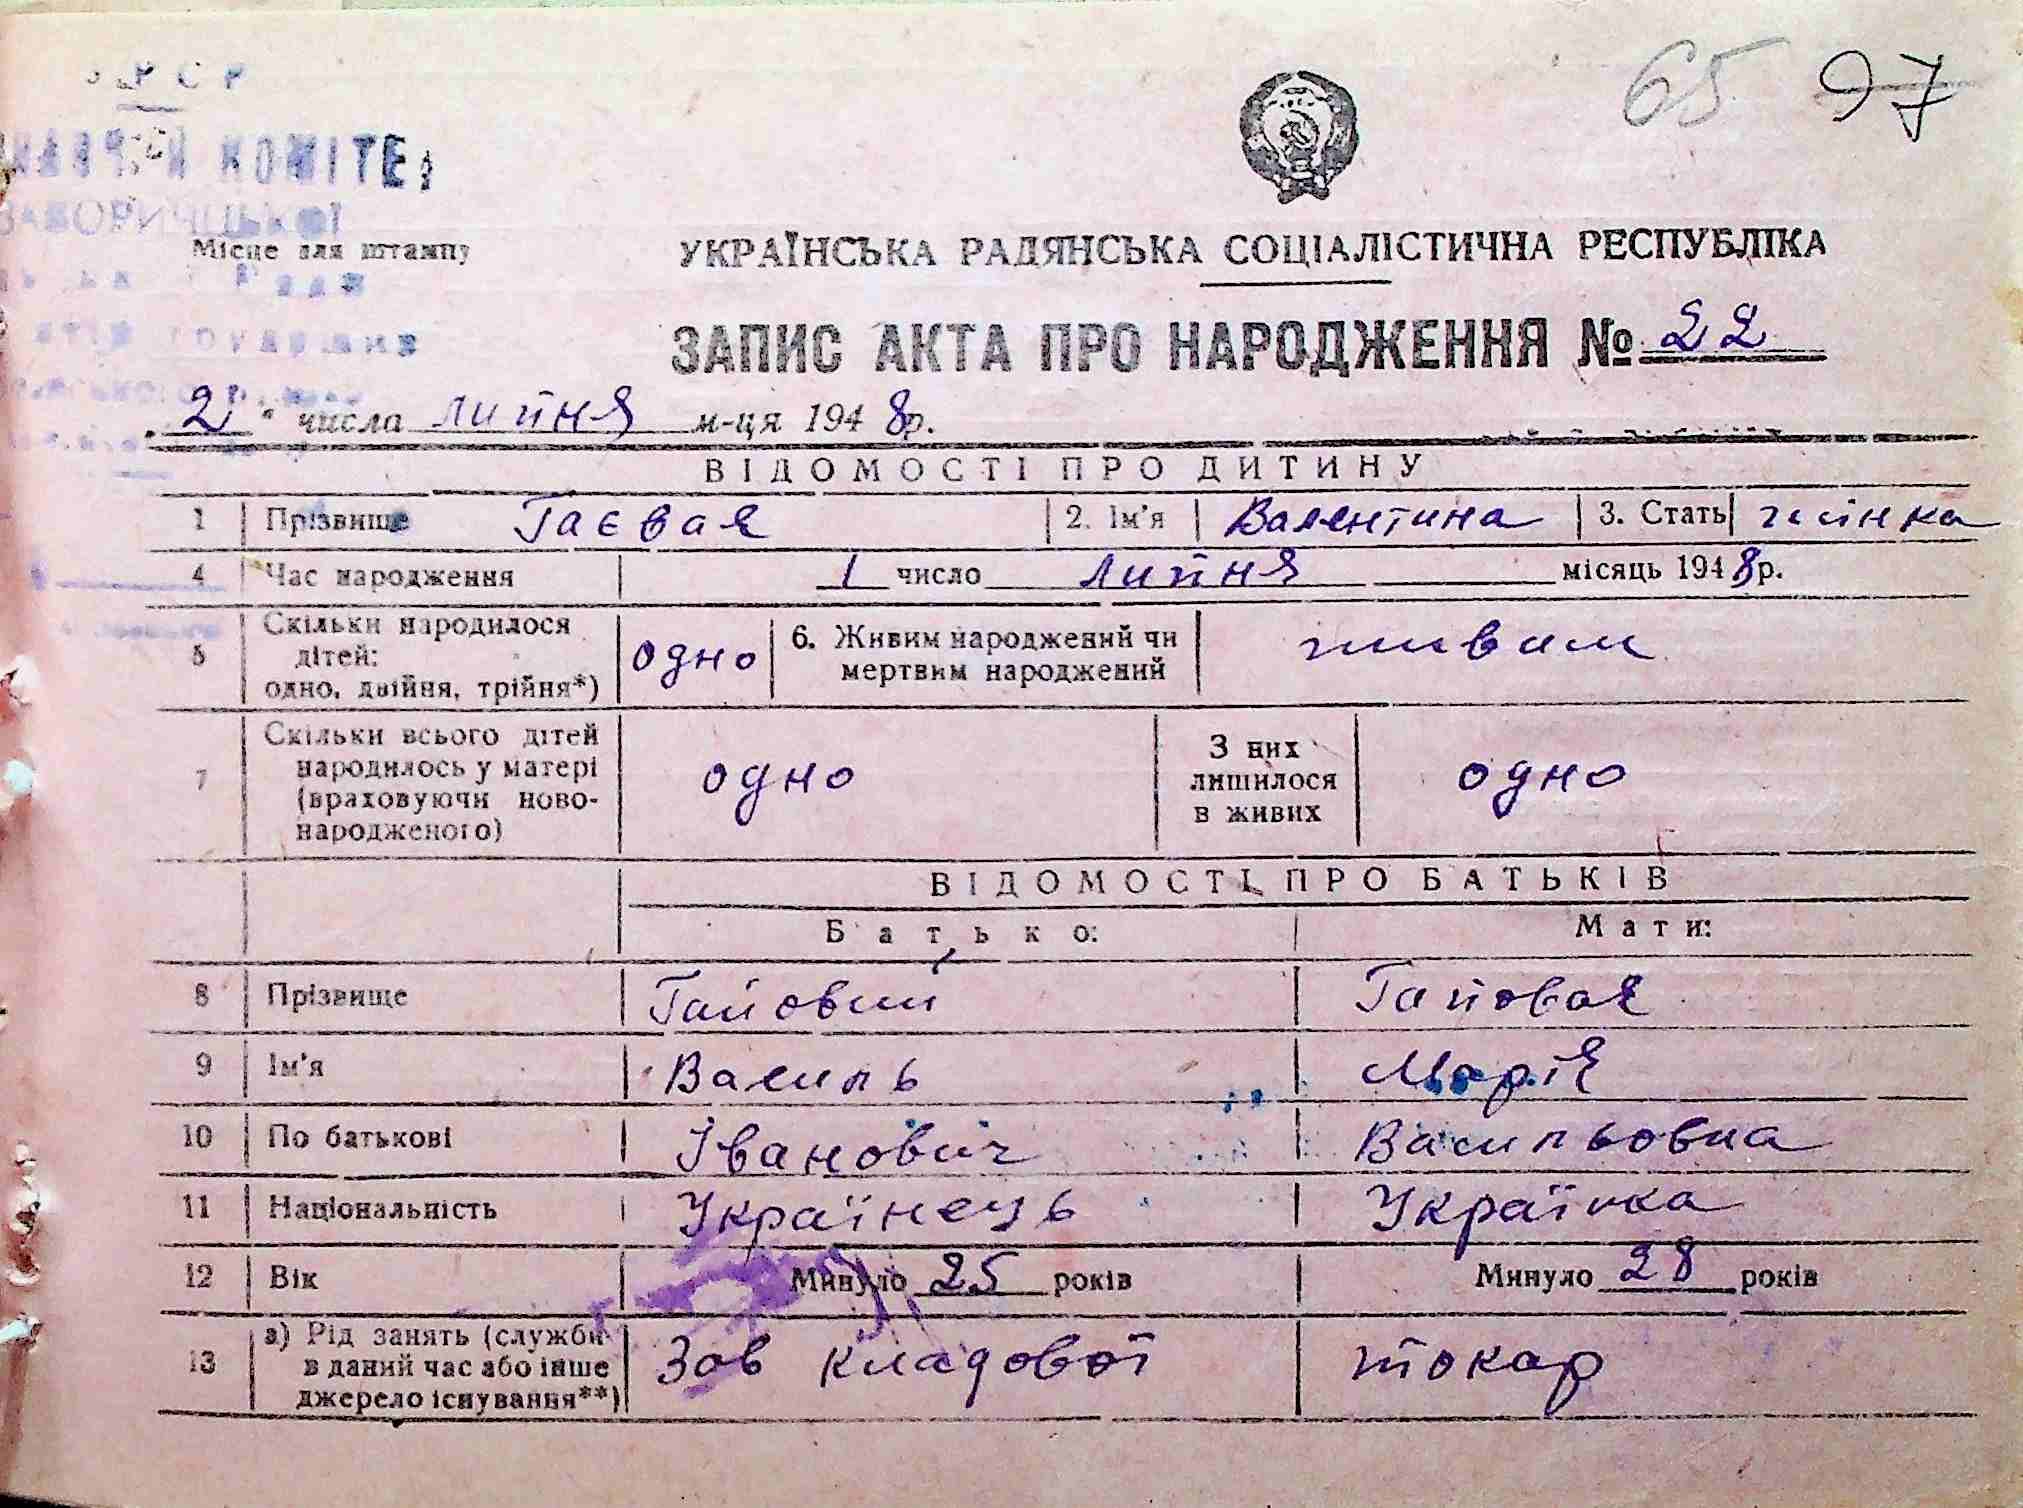 65 97
РСР
КОМІТЕ
Місце для штампу
УКРАЇНСЬКА РАДЯНСЬКА СОЦІАЛІСТИЧНА РЕСПУБЛІКА
ЗАПИС АКТА ПРО НАРОДЖЕННЯ № 22
"2" числа липня м-ця 1948р.
ВІДОМОСТІ ПРО ДИТИНУ
1 Прізвище Гаєвая 2. Ім'я Валентина 3. Стать жінка
4 Час народження 1 число липня місяць 1948р.
5 Скільки народилося
дітей:
одно, двійня, трійня*)
одно
6. Живим народжений чи
мертвим народжений
живим
7 Скільки всього дітей
народилось у матері
(враховуючи ново-
народженого)
одно
З них
лишилося
в живих
одно
ВІДОМОСТІ ПРО БАТЬКІВ
Батько: Мати:
8 Прізвище Гайовий Гайовая
9 Ім'я Василь Марія
10 По батькові Іванович Васильовна
11 Національність Українець Українка
12 Вік Минуло 25 років Минуло 28 років
13 а) Рід занять (служби
в даний час або інше
джерело існування**)
Зав кладової токар